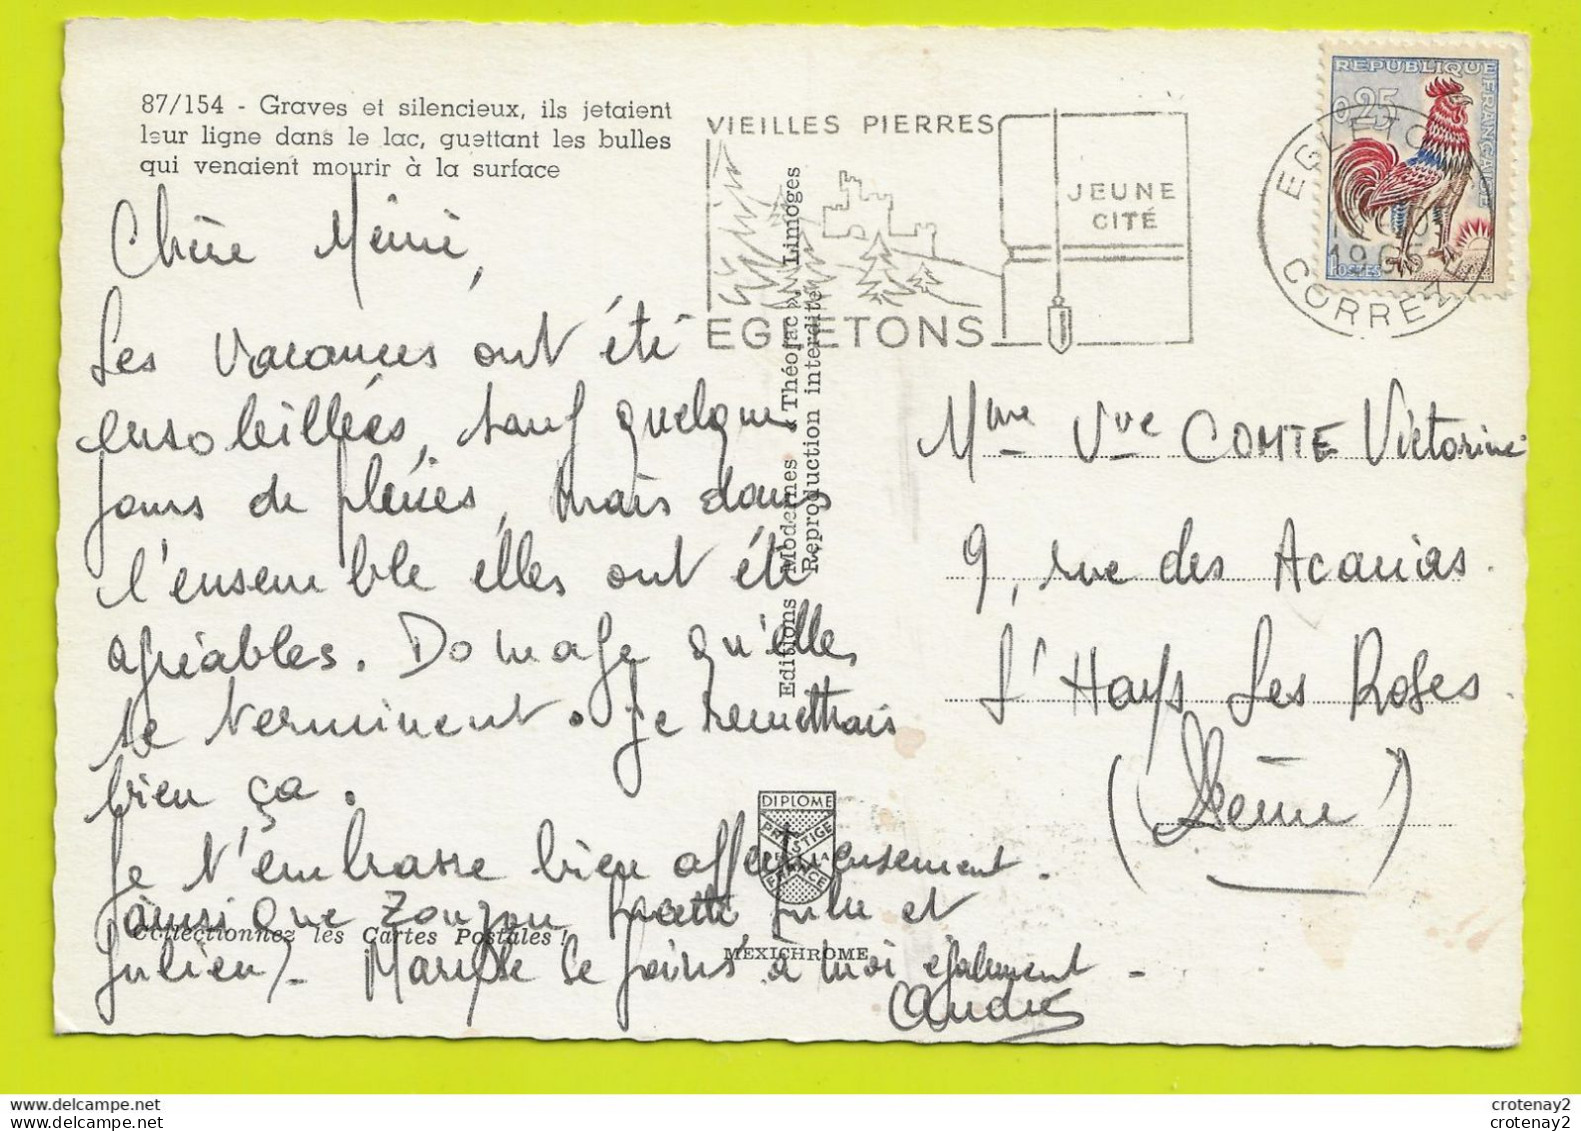 87/154 - Graves et silencieux, ils jetaient
leur ligne dans le lac, guettant les bulles
qui venaient mourir à la surface
VIEILLES PIERRES
JEUNE
CITÉ
EGLETONS
REPUBLIQUE FRANÇAISE
0,25
POSTES
EGLETONS
1965
CORREZE
Chère Mémé,
Les vacances ont été
ensoleillées, sauf quelque
jours de pluies, mais dans
l'ensemble elles ont été
agréables. Domage qu'elle
se terminent. Je remettrais
bien ça.
Je t'embrasse bien affectueusement.
ainsi que Zouzou, Lulu et
Julien). se joins à moi également -
André
Editions Modernes « Théojac », Limoges
Reproduction interdite
Mme Vve COMTE Victorine
9, rue des Acacias.
L'Hays Les Roses.
(Seine)
DIPLOME
PRESTIGE
DE LA
FRANCE
MEXICHROME
Collectionnez les Cartes Postales !
crotenay2
crotenay2